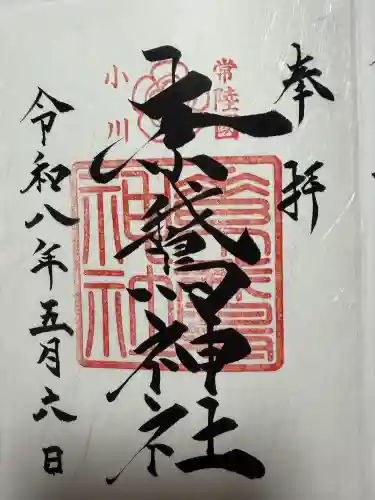 奉拝
常陸國
素鵞神社
小川
令和八年五月六日